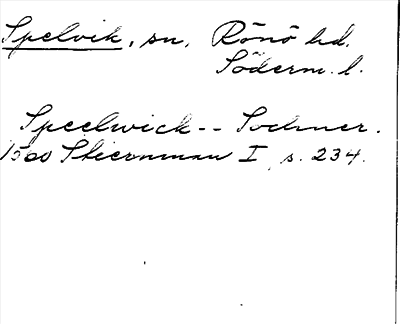 Spelvik, sn, Rönö hd.
Söderm. l.
Speelwick -- Sochner.
1560 Stiernman I, s. 234.